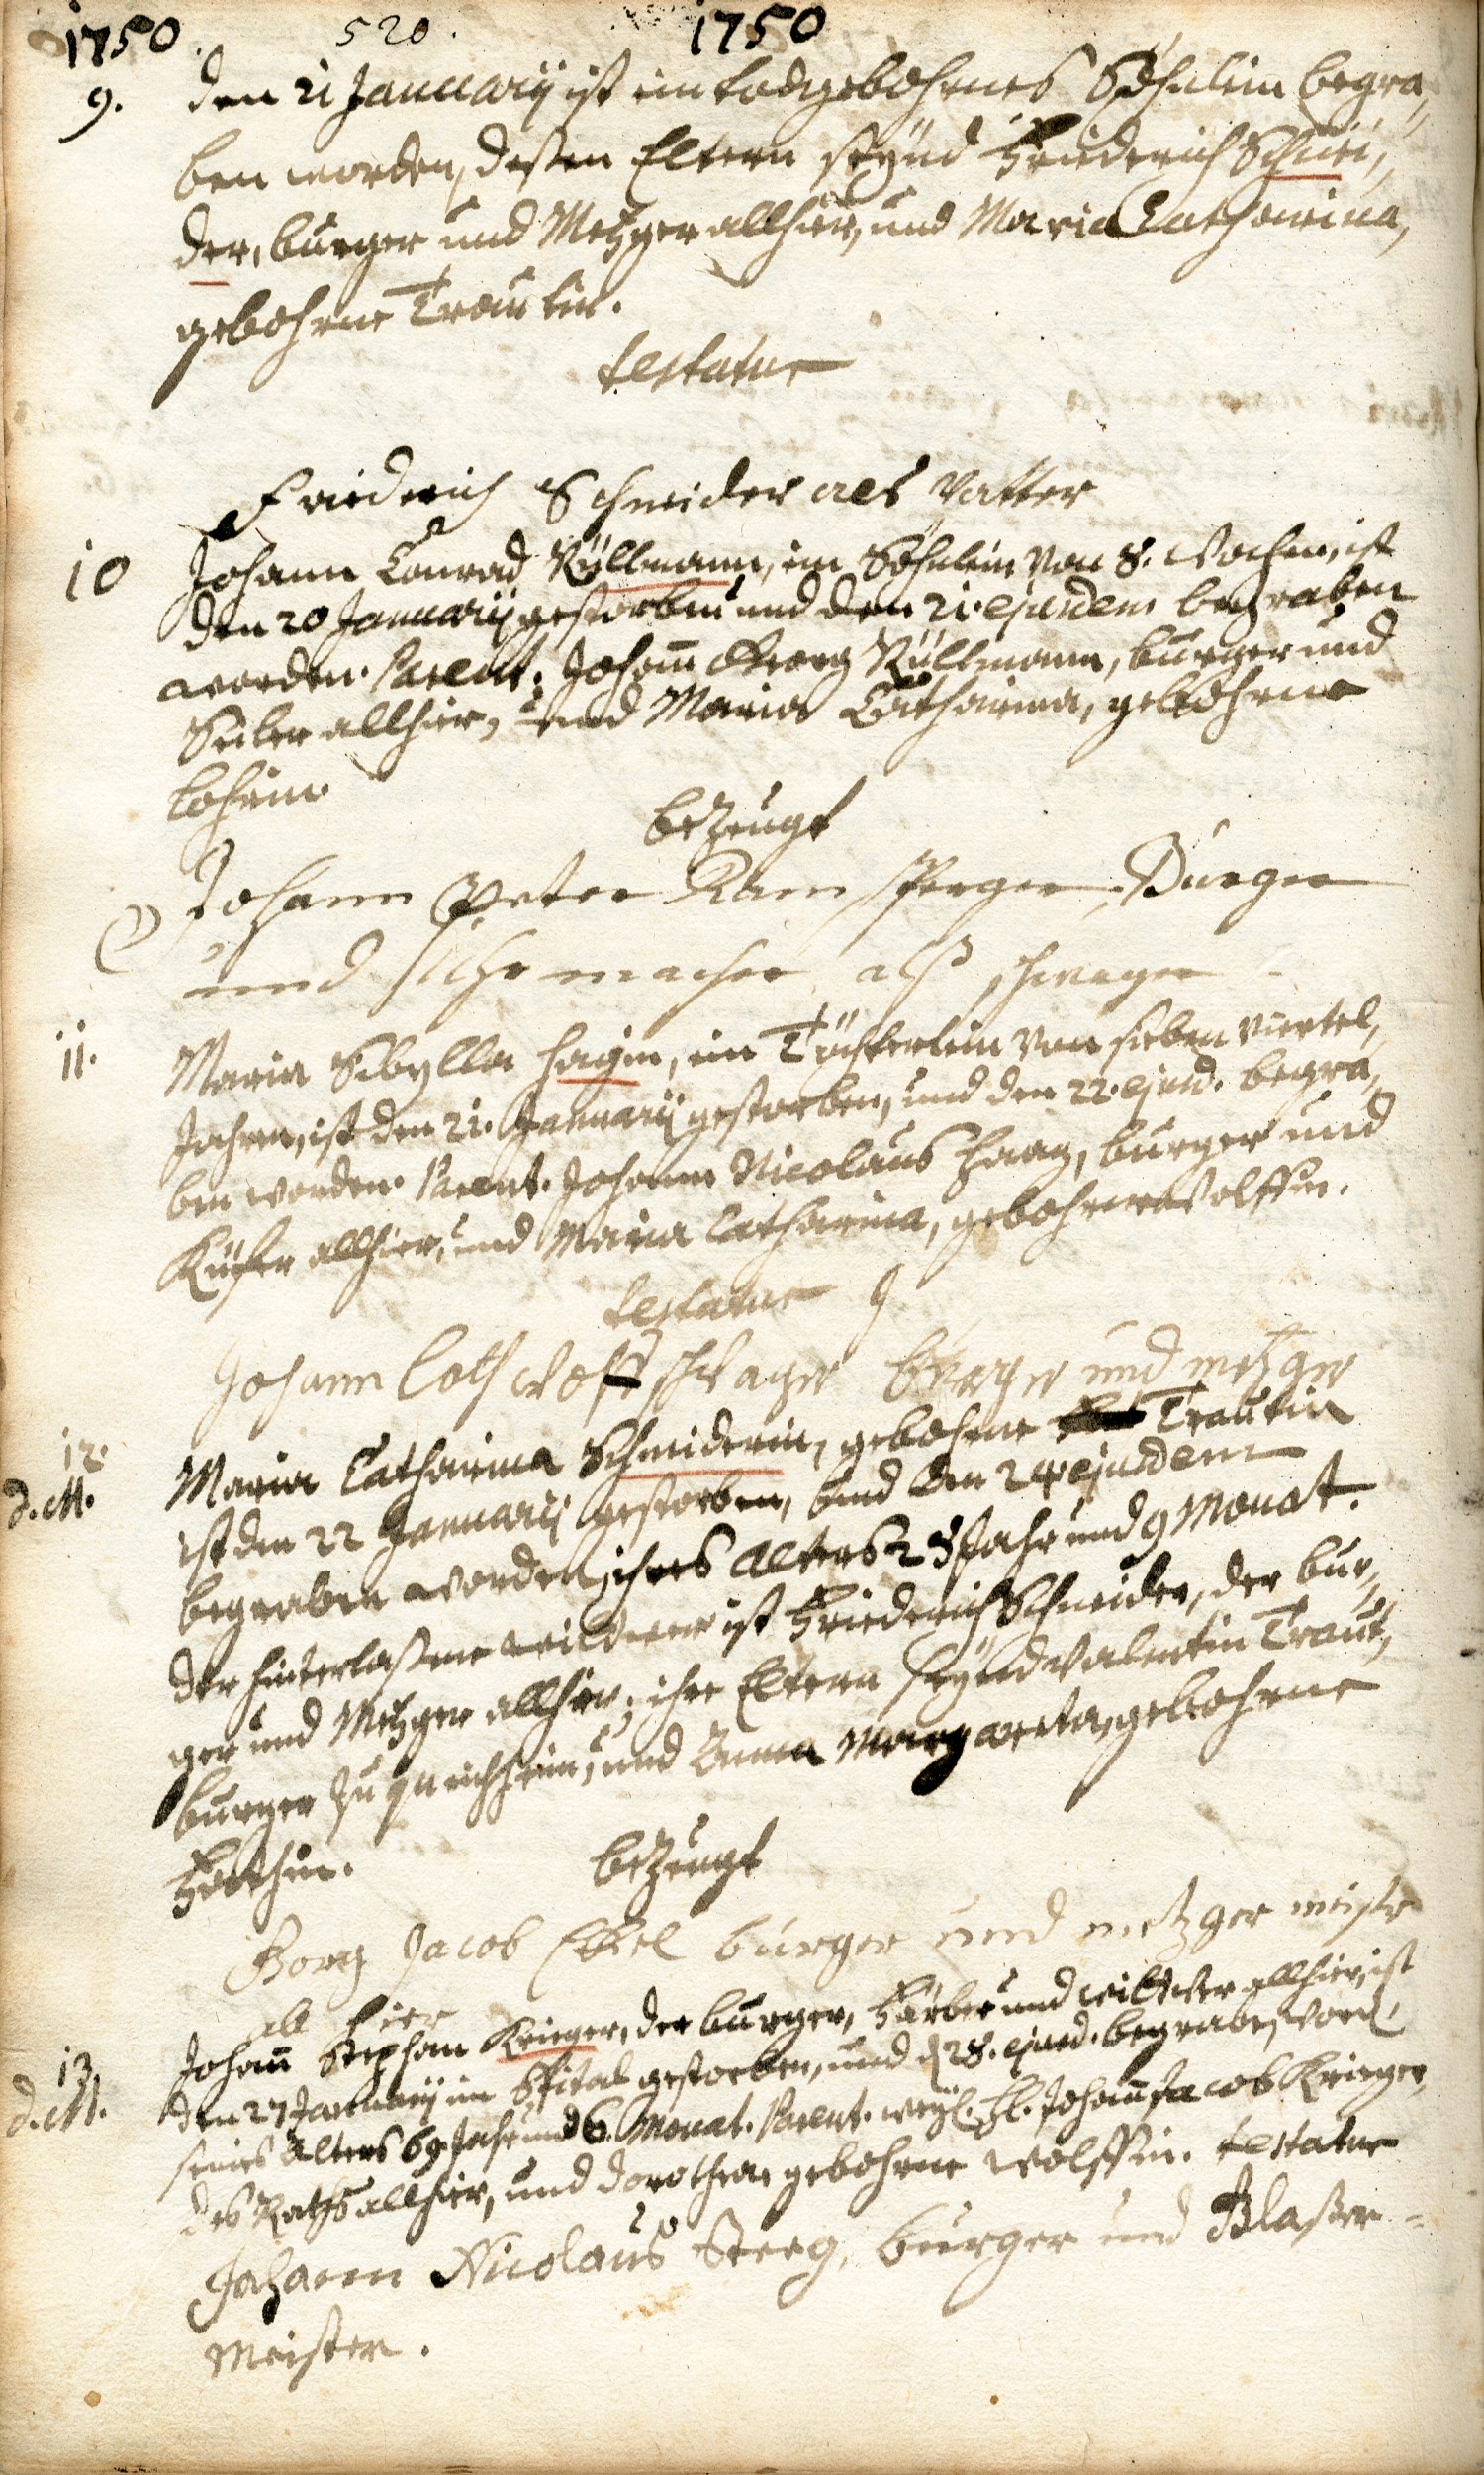 1750 520. 1750
9. den 21 Januarij ist ein todgebohrnes Söhnlein begra„
ben worden, deßen Eltern seÿnd Friederich Schnei„
der, burger und Metzger allhier, und Maria Catharina,
gebohrne Trautin.
testatur
Friederich Schneider als Vatter
10 Johann Conrad Küllmann, ein Söhnlein von 8. Wochen, ist
den 20 Januarij gestorben und den 21. ejusdem begraben
worden. Parent: Johañ Georg Küllmann, burger und
Seiler allhier, und Maria Catharina, gebohrne
bezeugt
Johann Peter Burger
und Uhrmacher alß schwager
11. Maria Sibylla Hagin, ein Töchterlein von sieben viertel,
Jahren, ist den 21. Januarij gestorben, und den 22. ejusd. begra„
ben worden. Parent. Johann Nicolaus Haag, burger und
Küfer allhier, und Maria Catharina, gebohrne Wolffin.
testatur
Johann schwager burger und metzger
12. Maria Catharina Schneiderin, gebohrne Trautin
d. M. ist den 22 Januarij gestorben, und den 24 ejusdem
begraben worden, ihres Alters 23 Jahr und 9 Monat.
der hinterlaßene wittwer ist Friederich Schneider, der bur„
ger und Metzger allhier; ihre Eltern seÿnd Valentin Traut,
burger zu und Anna Margareta, gebohrne
bezeugt
Georg Jacob burger und metzger meistr
all hier
13. Johañ Stephan Krieger, der burger, Färber und wittwer allhier, ist
d. M. den 27 Januarij im Spital gestorben, und d 28. ejusd. begraben word.
seines Alters 69. Jahr und 6. Monat. Parent. weyl. H. Johañ Jacob Krieger,
des Raths allhier, und Dorothea gebohrne Wolffin. testatur
Johann Nicolaus Steeg, burger und Glaßer-
Meister.